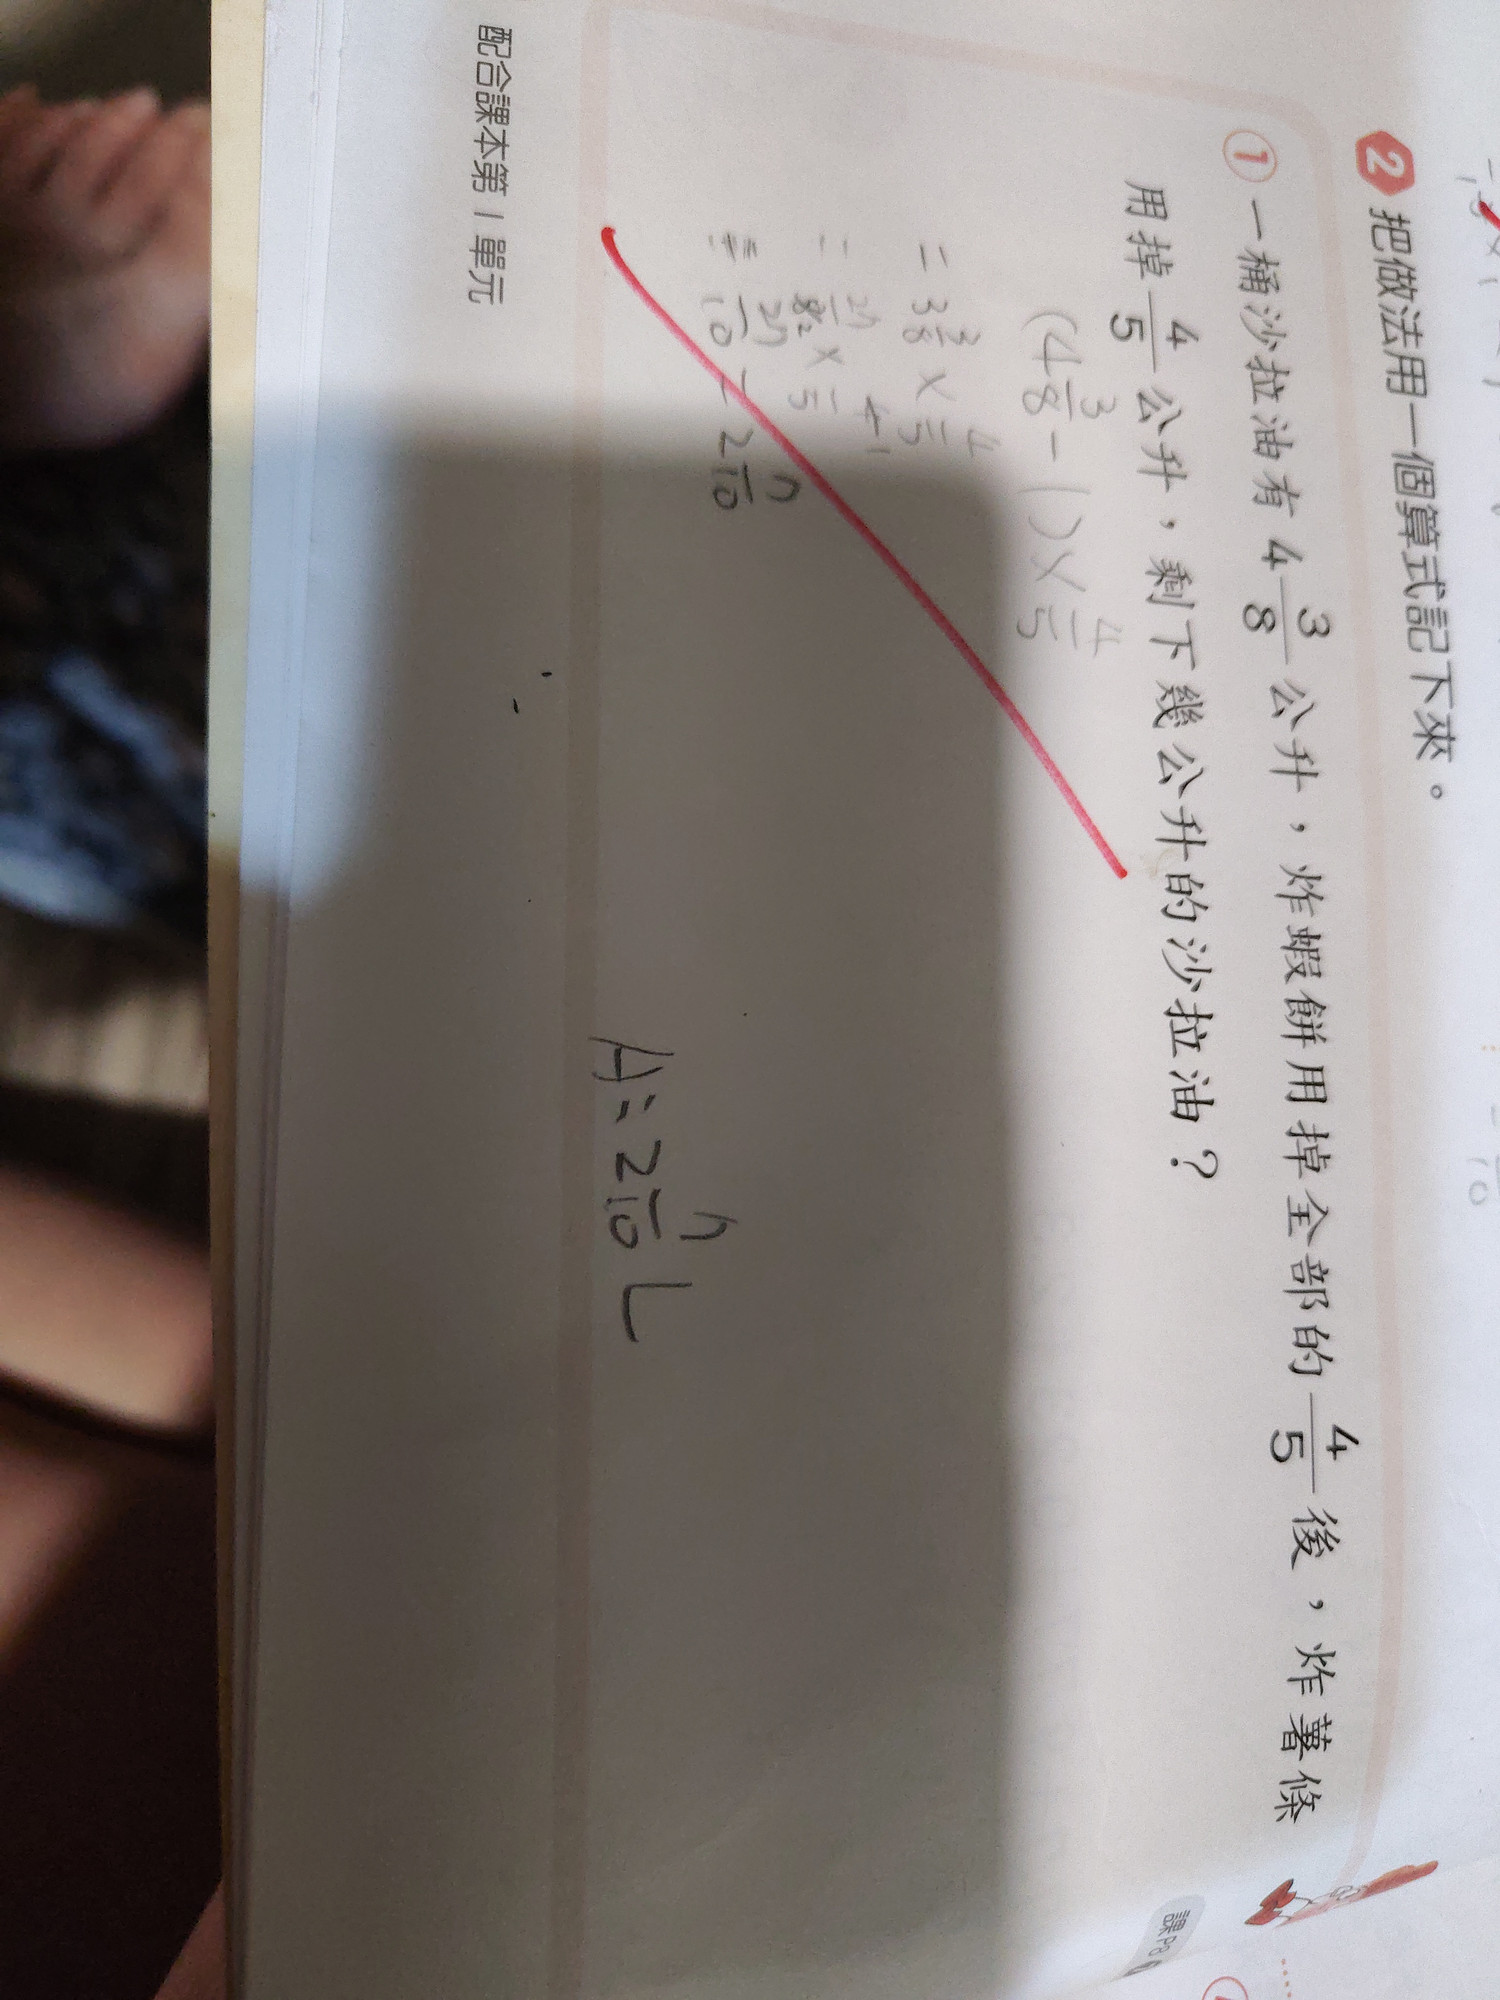 2 把做法用一個算式記下來。
① 一桶沙拉油有 4 3/8 公升，炸蝦餅用掉全部的 4/5 後，炸薯條
用掉 4/5 公升，剩下幾公升的沙拉油？
(4 3/8 - 1) × 4/5
= 3 3/8 × 4/5
= 27/8 2 × 4 1/5
= 27/10 = 2 7/10
A: 2 7/10 L
配合課本第1單元
課P8